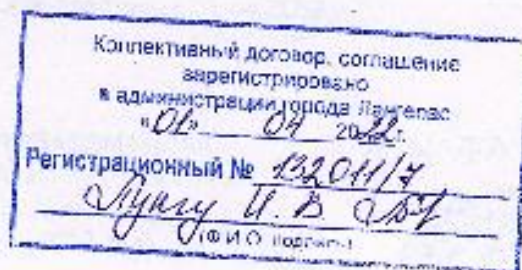 Коллективный договор, соглашение
зарегистрировано
в администрации города Лангепас
«01» 04 2022 г.
Регистрационный №
Лунгу И. В.
(Ф.И.О. подпись)